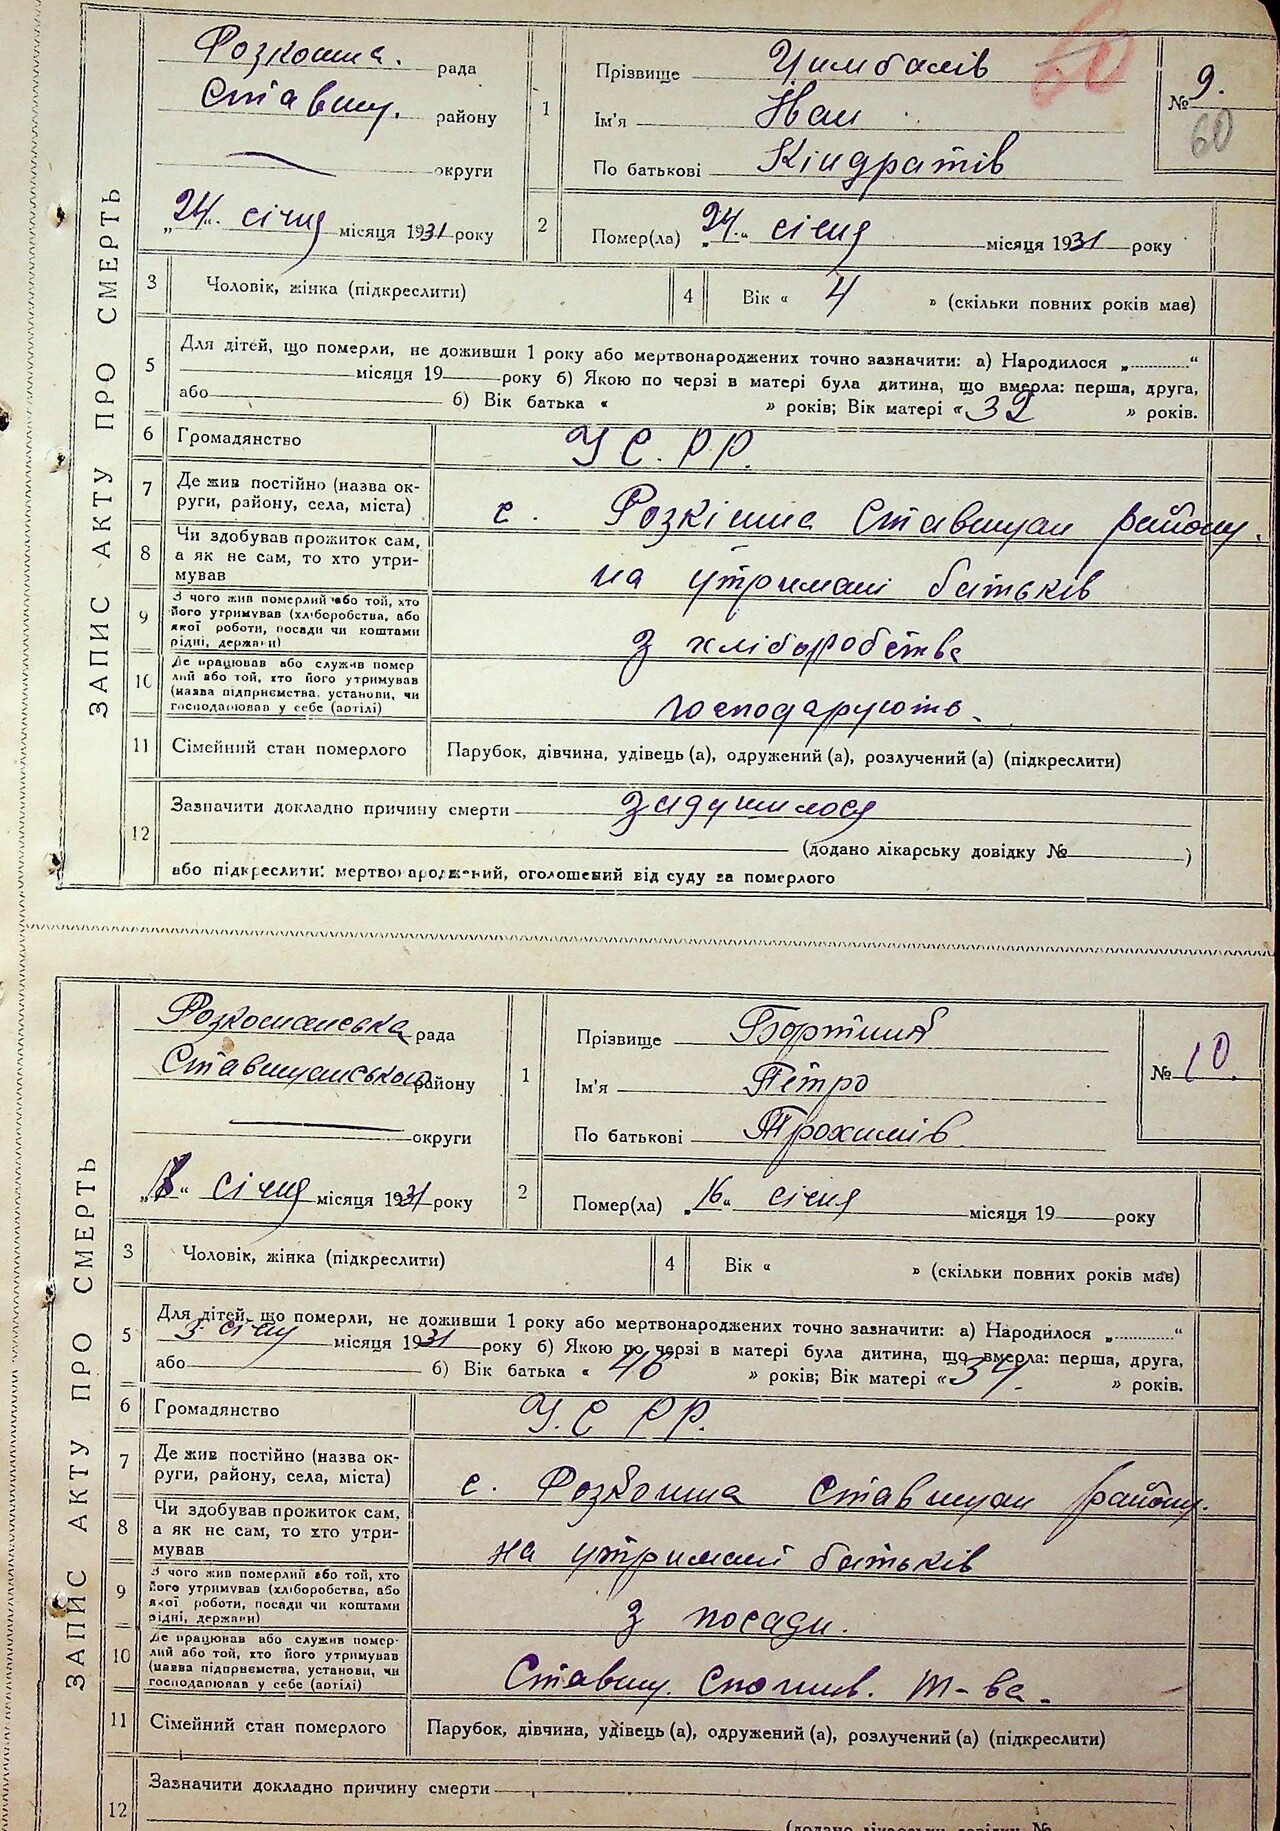 ЗАПИС АКТУ ПРО СМЕРТЬ
Розкошна. рада
Ставищ. району
округи
„24“ січня місяця 1931 року
1
Прізвище Цимбалів
Ім'я Іван
По батькові Кіндратів
№ 9.
60
60
2
Помер(ла) „24“ січня місяця 1931 року
3 Чоловік, жінка (підкреслити)
4 Вік « 4 » (скільки повних років має)
5 Для дітей, що померли, не доживши 1 року або мертвонароджених точно зазначити: а) Народилося „..........“
місяця 19 року б) Якою по черзі в матері була дитина, що вмерла: перша, друга,
або б) Вік батька « » років; Вік матері « 32 » років.
6 Громадянство У С. Р Р.
7 Де жив постійно (назва округи, району, села, міста) с. Розкішна Ставищан району.
8 Чи здобував прожиток сам, а як не сам, то хто утримував на утримані батьків
9 З чого жив померлий або той, хто його утримував (хліборобства, або якої роботи, посади чи коштами рідні, держави) з хліборобства
10 Де працював або служив померлий або той, хто його утримував (назва підприємства, установи, чи господарював у себе (артілі) господарують.
11 Сімейний стан померлого Парубок, дівчина, удівець (а), одружений (а), розлучений (а) (підкреслити)
12 Зазначити докладно причину смерти задушилося
(додано лікарську довідку № )
або підкреслити: мертвонароджений, оголошений від суду за померлого
ЗАПИС АКТУ ПРО СМЕРТЬ
Розкошанська рада
Ставищанського району
округи
січня місяця 1931 року
1
Прізвище Бортний
Ім'я Пétро
По батькові Трохимів
№ 10.
2
Помер(ла) „16“ січня місяця 19 року
3 Чоловік, жінка (підкреслити)
4 Вік « » (скільки повних років має)
5 Для дітей, що померли, не доживши 1 року або мертвонароджених точно зазначити: а) Народилося „..........“
3 січня місяця 1931 року б) Якою по черзі в матері була дитина, що вмерла: перша, друга,
або б) Вік батька « 46 » років; Вік матері « 37. » років.
6 Громадянство У. С Р Р.
7 Де жив постійно (назва округи, району, села, міста) с. Розкошна Ставищан району.
8 Чи здобував прожиток сам, а як не сам, то хто утримував на утримані батьків
9 З чого жив померлий або той, хто його утримував (хліборобства, або якої роботи, посади чи коштами рідні, держави) з посади.
10 Де працював або служив померлий або той, хто його утримував (назва підприємства, установи, чи господарював у себе (артілі) Ставищ. Спожив. т-ва.
11 Сімейний стан померлого Парубок, дівчина, удівець (а), одружений (а), розлучений (а) (підкреслити)
12 Зазначити докладно причину смерти
(додано лікарську довідку №